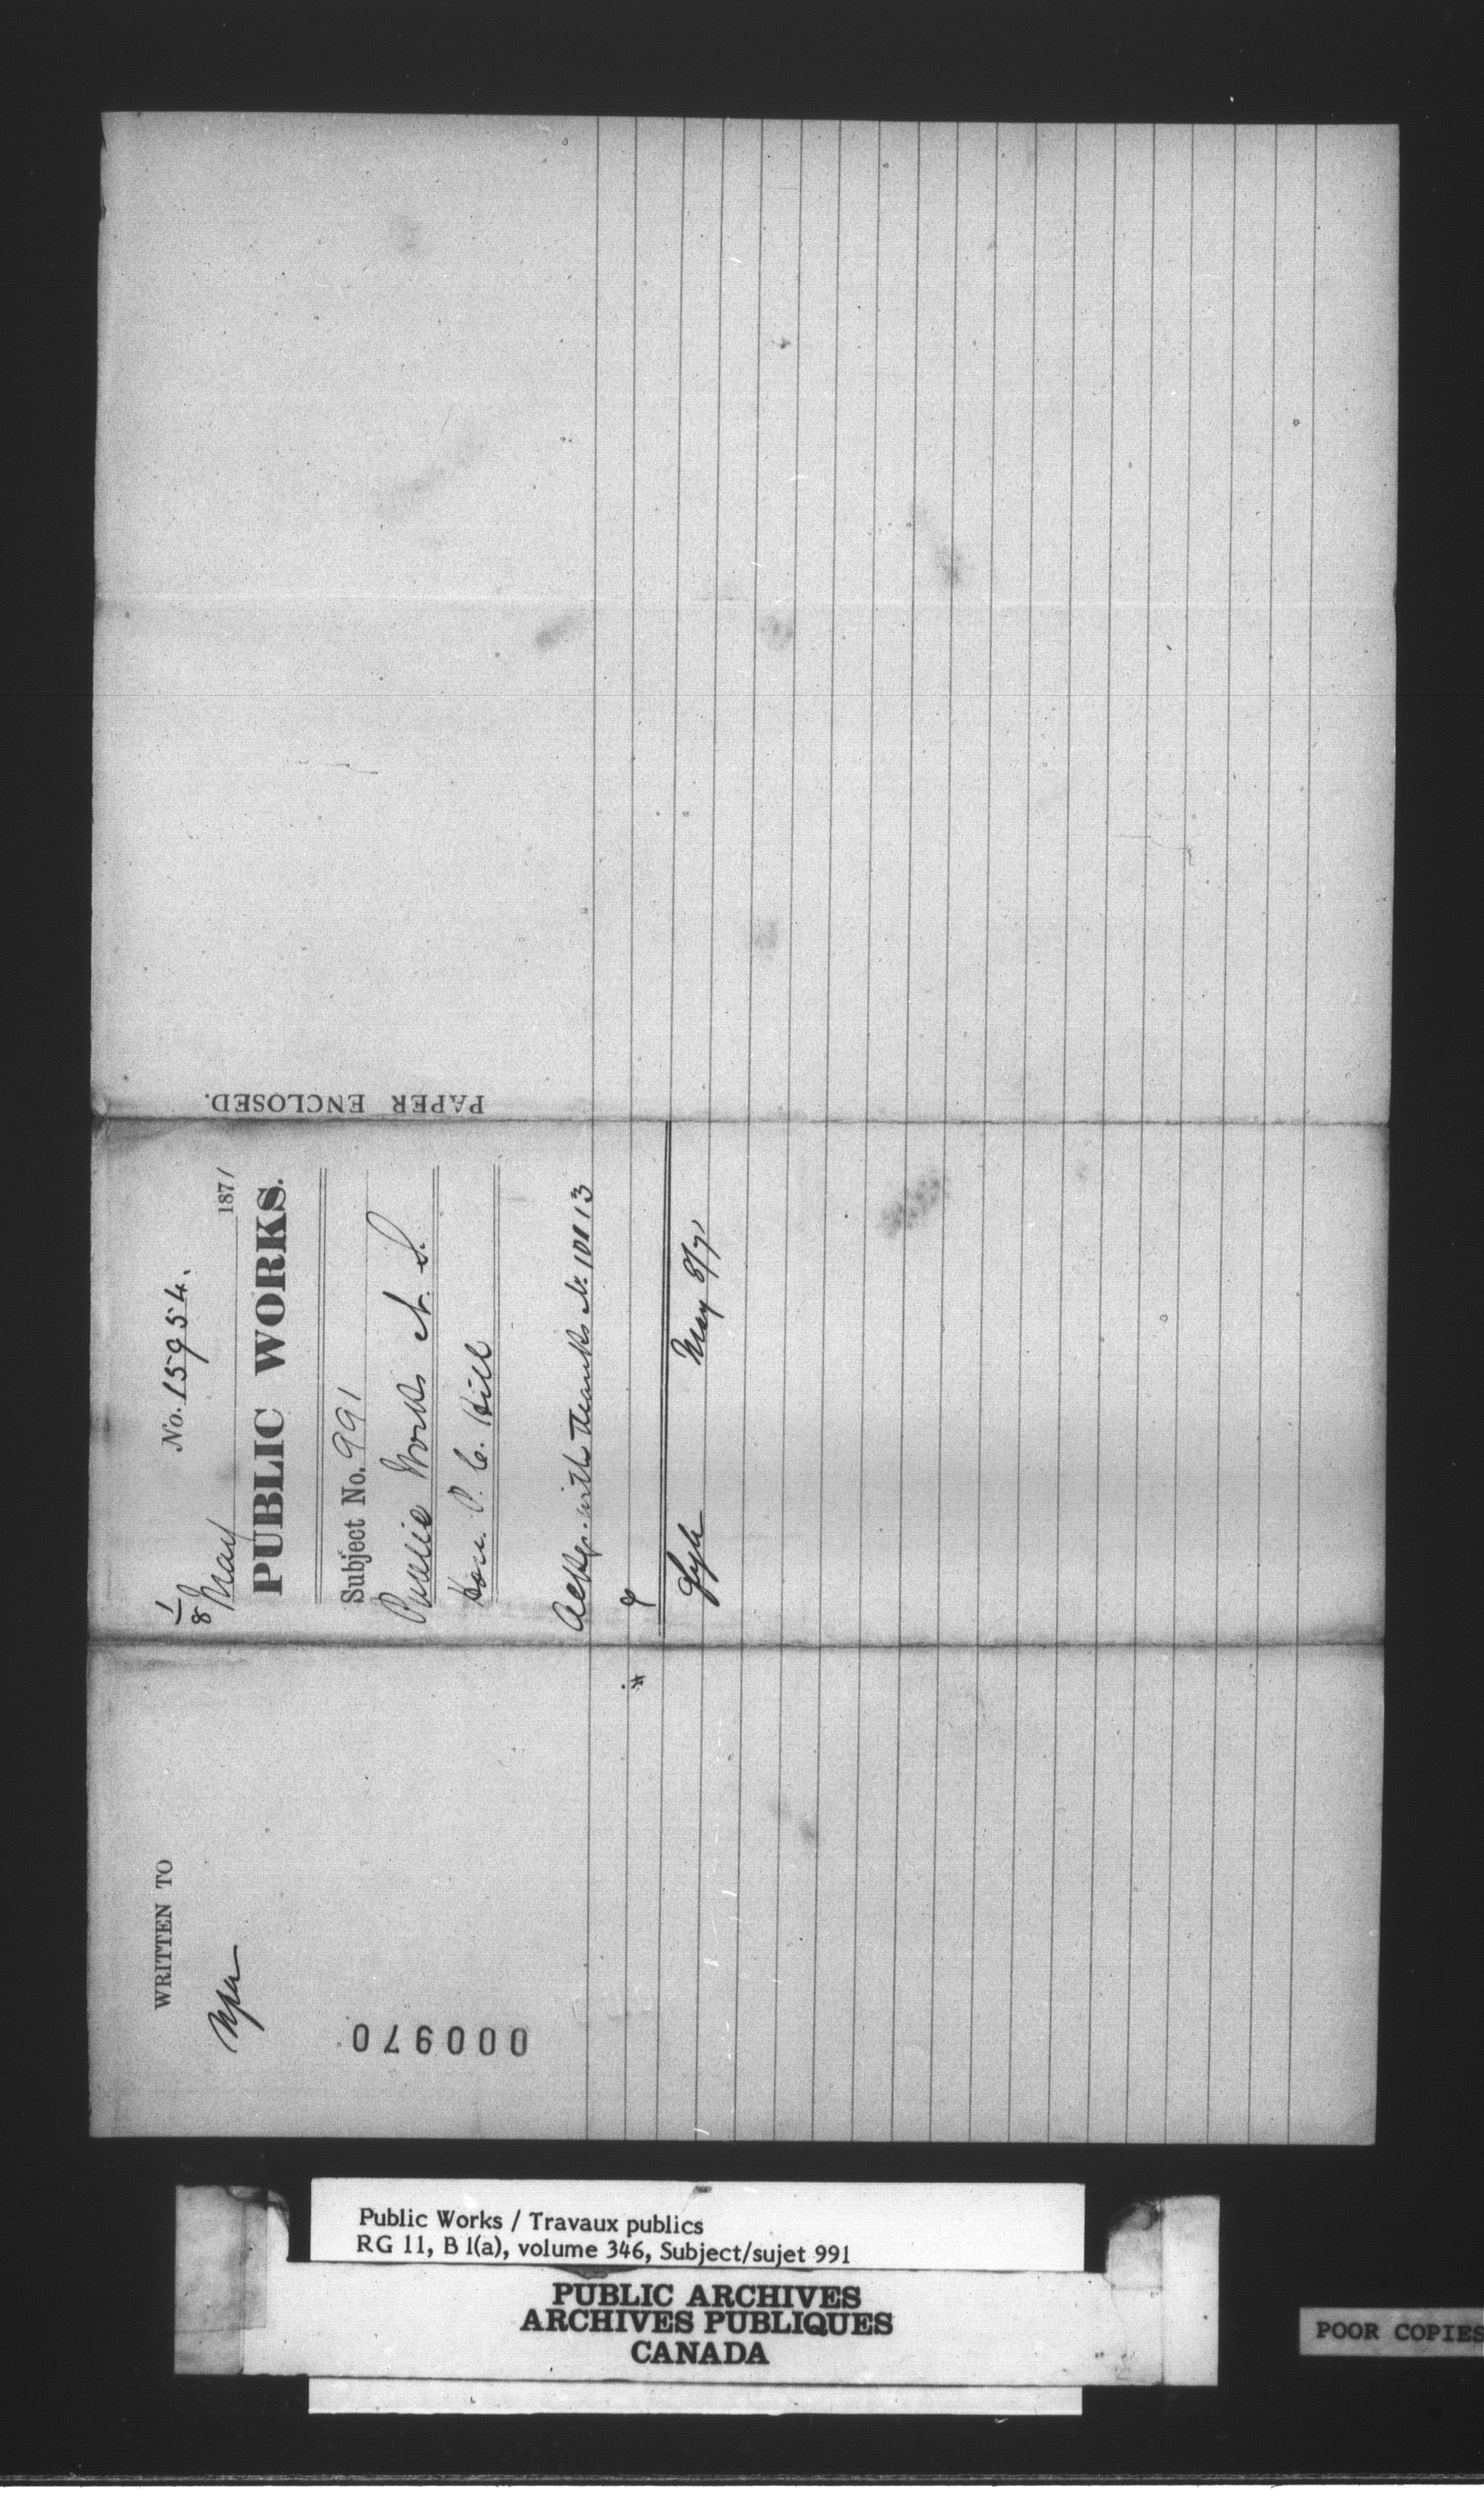 PAPER ENCLOSED.
1/8
No. 15954.
May 1871
PUBLIC WORKS.
Subject No. 991
Public Works N. S.
Hon. P. C. Hill
Ackgd. with thanks No. 10813
May 8/71
WRITTEN TO
000970
Public Works / Travaux publics
RG 11, B1(a), volume 346, Subject/sujet 991
PUBLIC ARCHIVES
ARCHIVES PUBLIQUES
CANADA
POOR COPIES